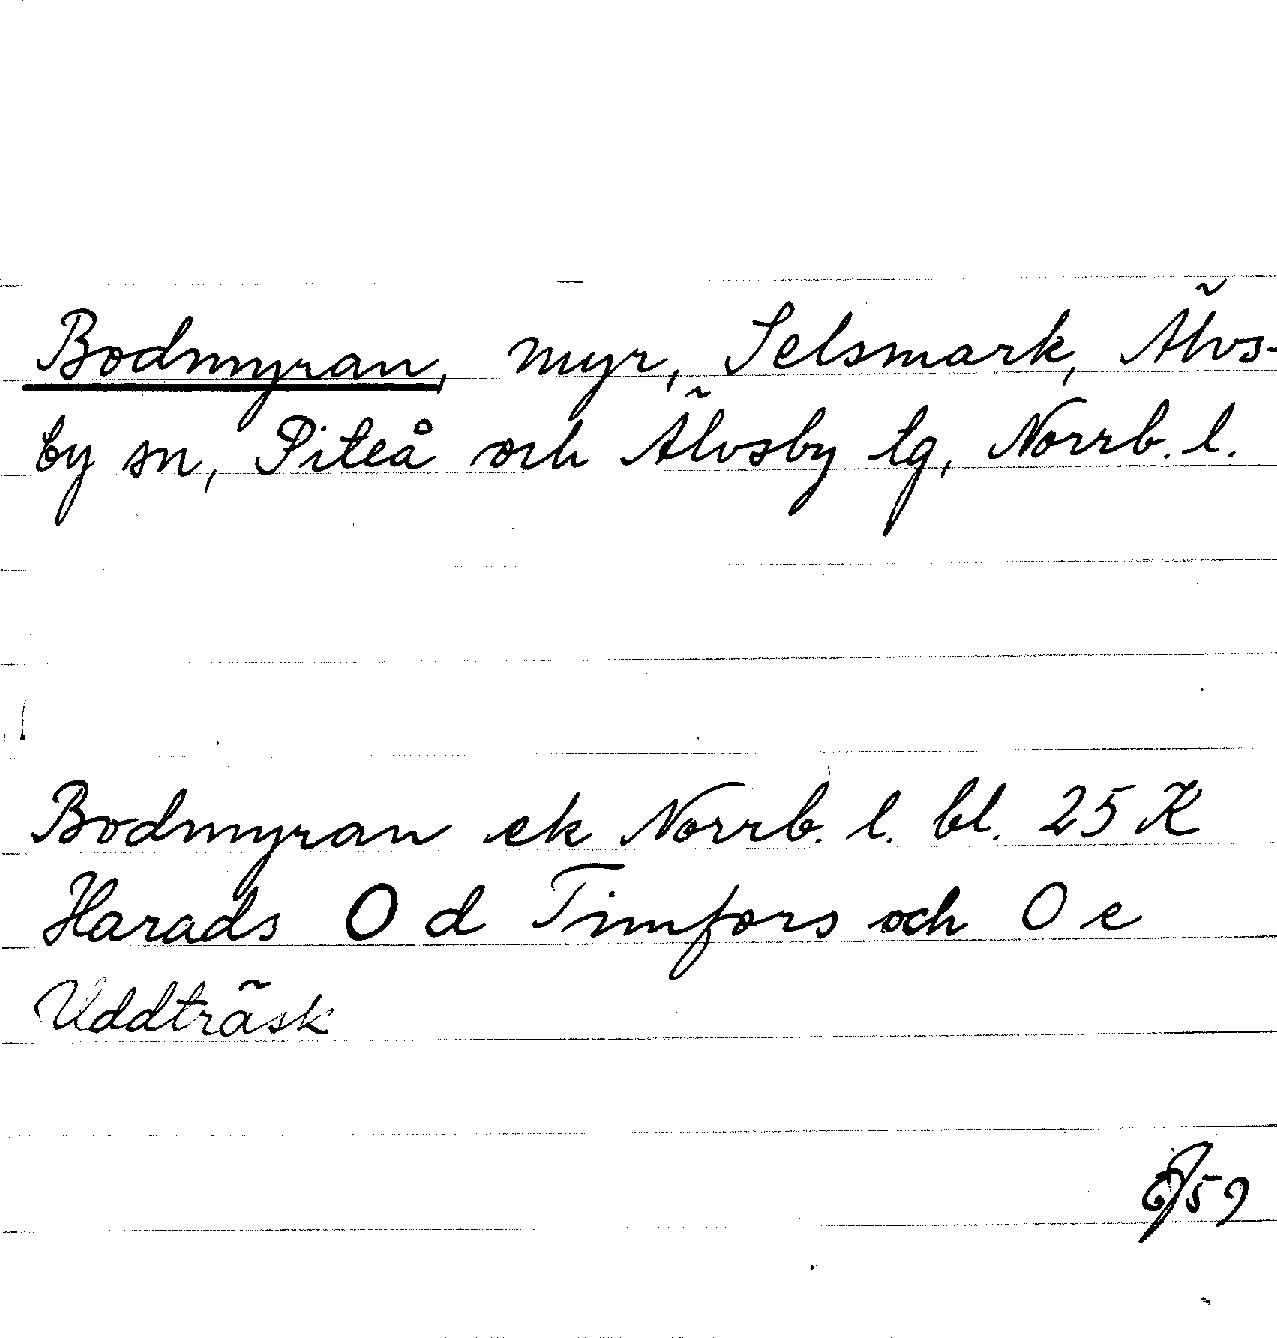 Bodmyran, myr, Selsmark, Älvs-
by sn, Piteå och Älvsby tg, Norrb. l.
Bodmyran ek Norrb. l. bl. 25 K
Harads O d Timfors och O e
Uddträsk
/59